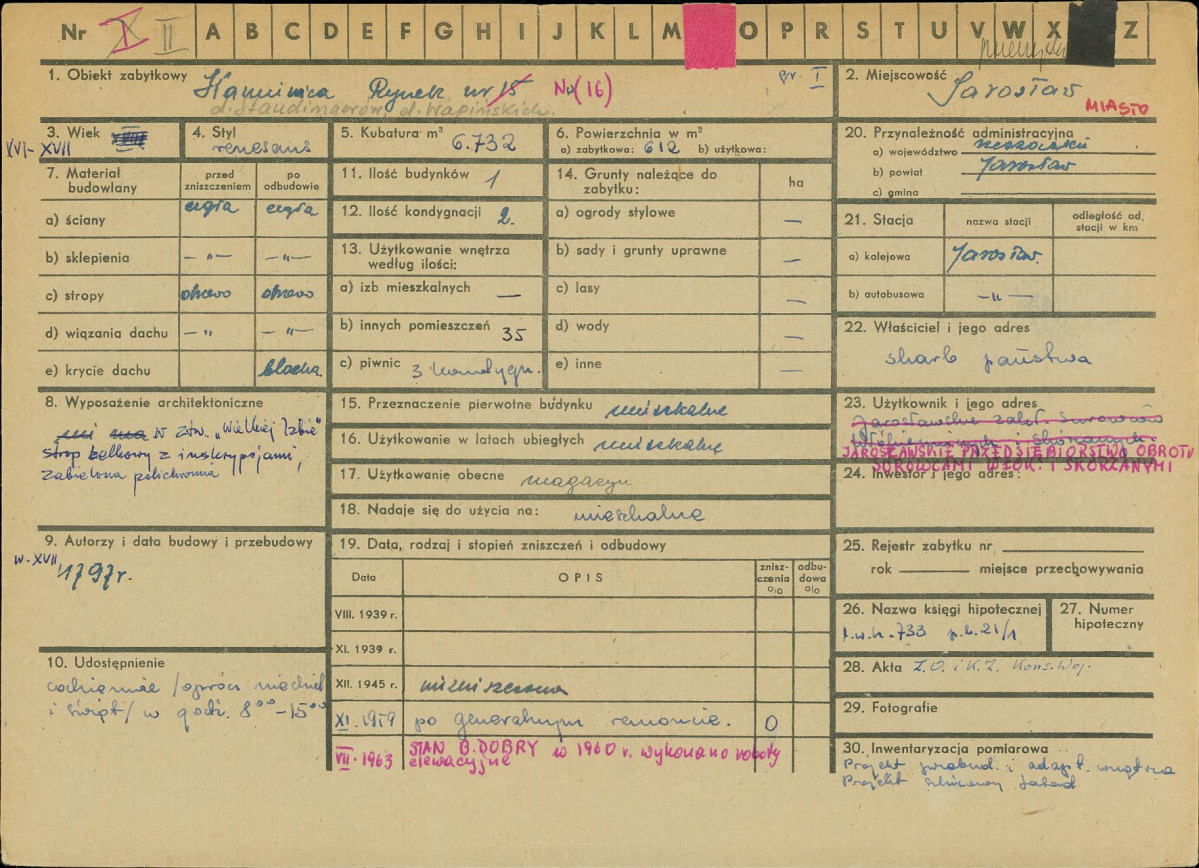 Nr X II A B C D E F G H I J K L M O P R S T U V W X Z
1. Obiekt zabytkowy Kamienica Rynek nr 15 No (16) gr. I
d. Staudingerów, d. Wapińskich.
2. Miejscowość Jarosław
MIASTO
3. Wiek
XVI-XVII
4. Styl
renesans
5. Kubatura m³
6.732
6. Powierzchnia w m²
a) zabytkowa: 612 b) użytkowa:
7. Materiał budowlany
przed zniszczeniem
po odbudowie
a) ściany cegła cegła
b) sklepienia —„— —„—
c) stropy drzewo drzewo
d) wiązania dachu —„ —„—
e) krycie dachu blacha
8. Wyposażenie architektoniczne
nie ma W zw. „Wielkiej Izbie"
strop belkowy z inskrypcjami,
zabielona polichromia
9. Autorzy i data budowy i przebudowy
w. XVII,
1797r.
10. Udostępnienie
codziennie /oprócz niedziel
i świąt/ w godz. 8⁰⁰-15⁰⁰
11. Ilość budynków 1
12. Ilość kondygnacji 2.
13. Użytkowanie wnętrza
według ilości:
a) izb mieszkalnych —
b) innych pomieszczeń 35
c) piwnic 3 kondygn.
14. Grunty należące do
zabytku:
ha
a) ogrody stylowe —
b) sady i grunty uprawne —
c) lasy —
d) wody —
e) inne —
15. Przeznaczenie pierwotne budynku mieszkalne
16. Użytkowanie w latach ubiegłych mieszkalne
17. Użytkowanie obecne magazyn
18. Nadaje się do użycia na: mieszkalne
19. Data, rodzaj i stopień zniszczeń i odbudowy
Data OPIS znisz-czenia o/o odbu-dowa o/o
VIII. 1939 r.
XI. 1939 r.
XII. 1945 r. niezniszczona
XI. 1959 po generalnym remoncie. 0
VII. 1963 STAN B. DOBRY w 1960 r. wykonano roboty
elewacyjne
20. Przynależność administracyjna
a) województwo rzeszowskie
b) powiat Jarosław
c) gmina
21. Stacja
nazwa stacji
odległość od stacji w km
a) kolejowa Jarosław.
b) autobusowa —„—
22. Właściciel i jego adres
skarb państwa
23. Użytkownik i jego adres
Jarosławskie zakł. surowców
włókienniczych i skórzanych.
JAROSŁAWSKIE PRZEDSIĘBIORSTWO OBROTU
SUROWCAMI WŁÓK. I SKÓRZANYMI
24. Inwestor i jego adres:
25. Rejestr zabytku nr
rok miejsce przechowywania
26. Nazwa księgi hipotecznej
l.w.h. 733 p.b. 21/1
27. Numer
hipoteczny
28. Akta Z.O. i K.Z. Kons. Woj.
29. Fotografie
30. Inwentaryzacja pomiarowa
Projekt przebud. i adapt. wnętrza
Projekt